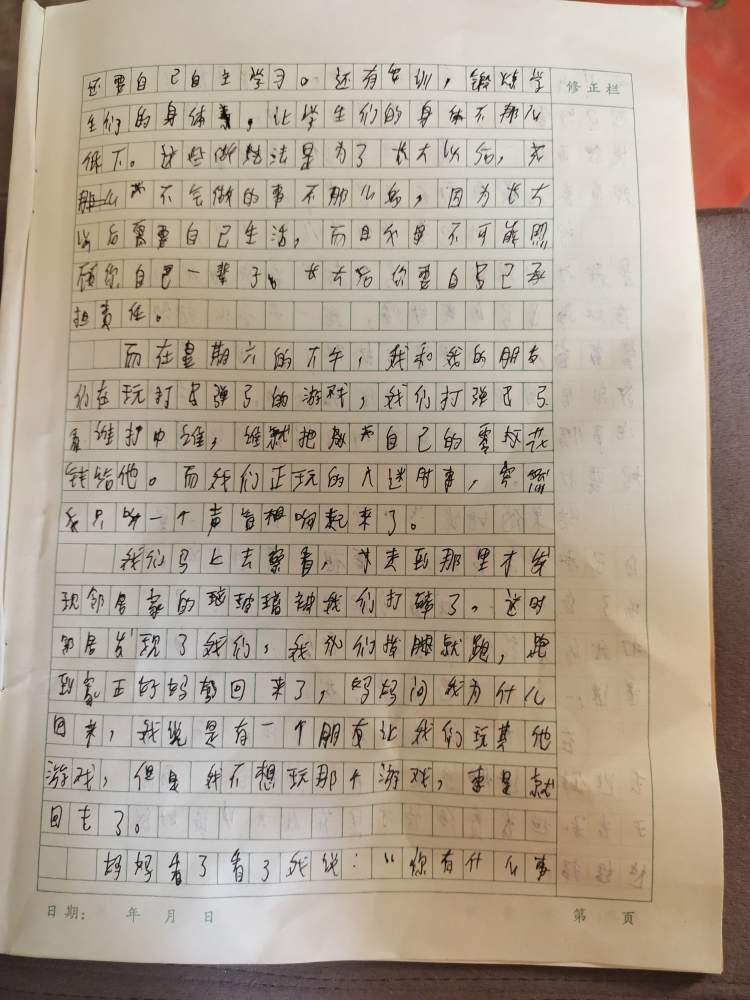 还要自己自主学习。还有军训，锻炼学
修正栏
生们的身体素，让学生们的身体不那么
低下。这些做法是为了长大以后，
不会做的事不那么多，因为长大
以后需要自己生活，而且我是不可能照
顾你自己一辈子。长大后你要自己承
担责任。
而在星期六的下午，我和我的朋友
们在玩打弹弓的游戏，我们打弹弓
谁打中谁，谁就把自己的零花
钱给他。而我们正玩的入迷时事，
只听一个声音相响起来了。
我们马上去察看，才走到那里才发
现邻居家的玻璃被我们打碎了。这时
邻居发现了我们，我们拔脚就跑，跑
到家正好妈妈回来了，妈妈问我为什么
回来，我说是有一个朋友让我们玩其他
游戏，但是我不想玩那个游戏，是就
回去了。
妈妈看了看了我说：“你有什么事
日期： 年 月 日
第 页